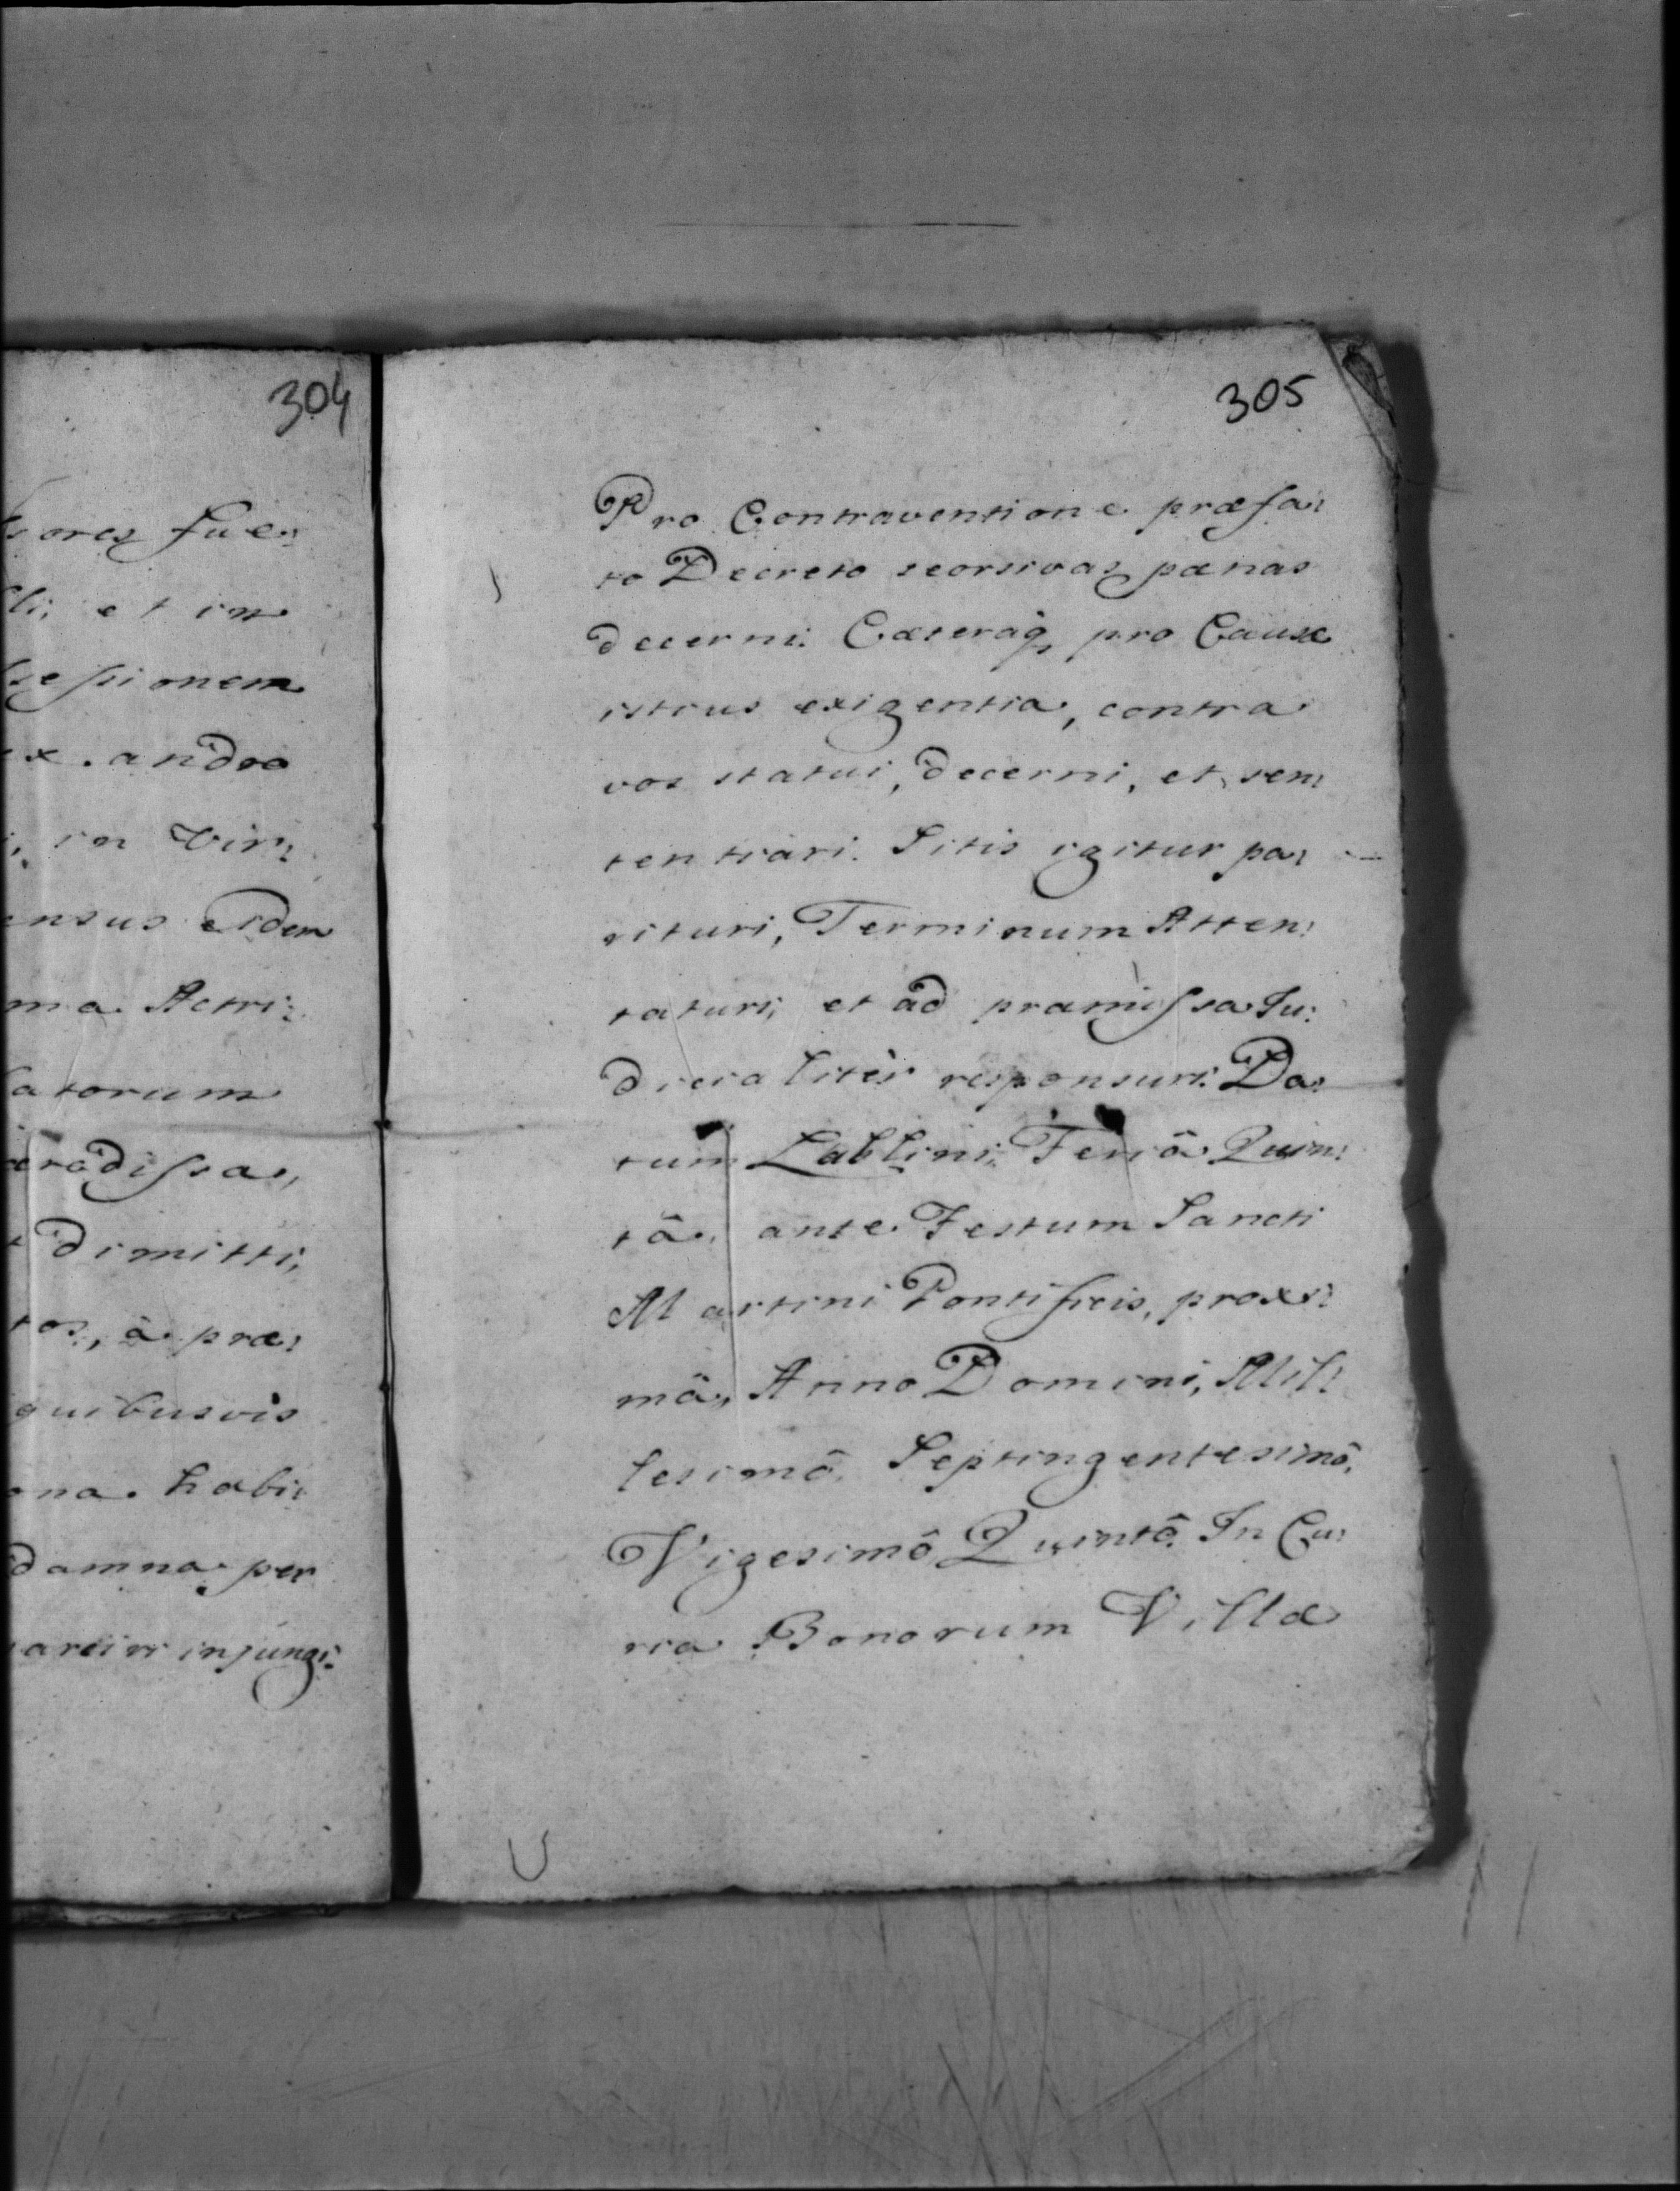 304
ores fue:
li; et in
sessionem
ex. andro
in Vir:
ensus eidem
ma Actri:
atorum
tradissa,
dimitti,
tos, à præ:
quibusvis
ona habi:
damna per
arciri injungi.
305
Pro Contraventione præfa:
to Decreto seorsivas pænas
decerni. Cæteraq, pro Causæ
istius exigentia, contra
vos statui, decerni, et sen:
tentiari. Sitis igitur pa:
rituri, Terminum Atten:
taturi, et ad præmissa Ju:
dicialitèr responsuri. Da:
tum Lublini, Feriâ Quin:
tâ, ante Festum Sancti
Martini Pontificis, proxi:
mâ, Anno Domini, Mill:
lesimô Septingentesimô,
Vigesimô Quintô. In Cu:
ria Bonorum Villæ